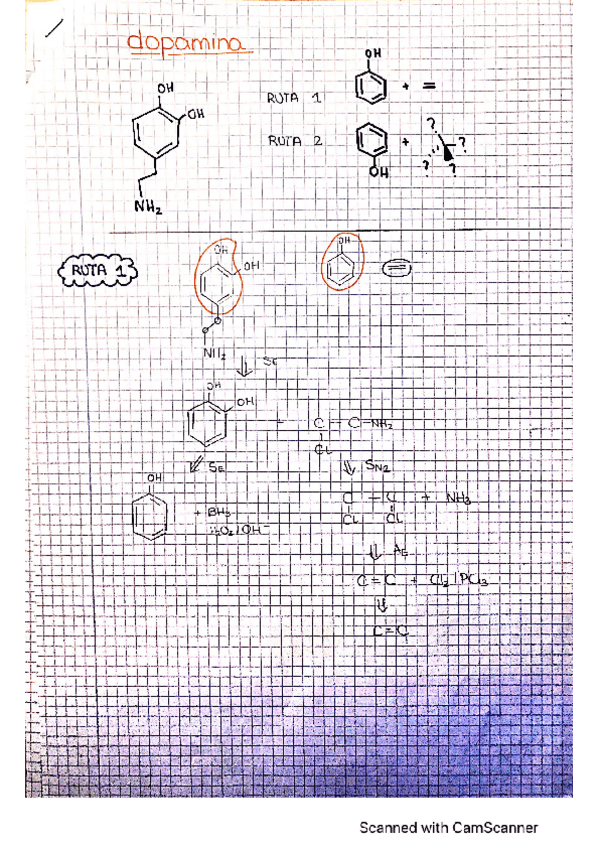 dopamina
OH
OH
NH₂
RUTA 1 OH + =
RUTA 2 OH + ? ? ? ?
RUTA 1
OH
OH
NH₂
OH
SE
OH
OH
+ C - C - NH₂
CL
SE
SN2
OH
+ BH₃
H₂O₂/OH⁻
C - C + NH₃
CL CL
AE
C = C + Cl₂/PCl₃
C = C
Scanned with CamScanner